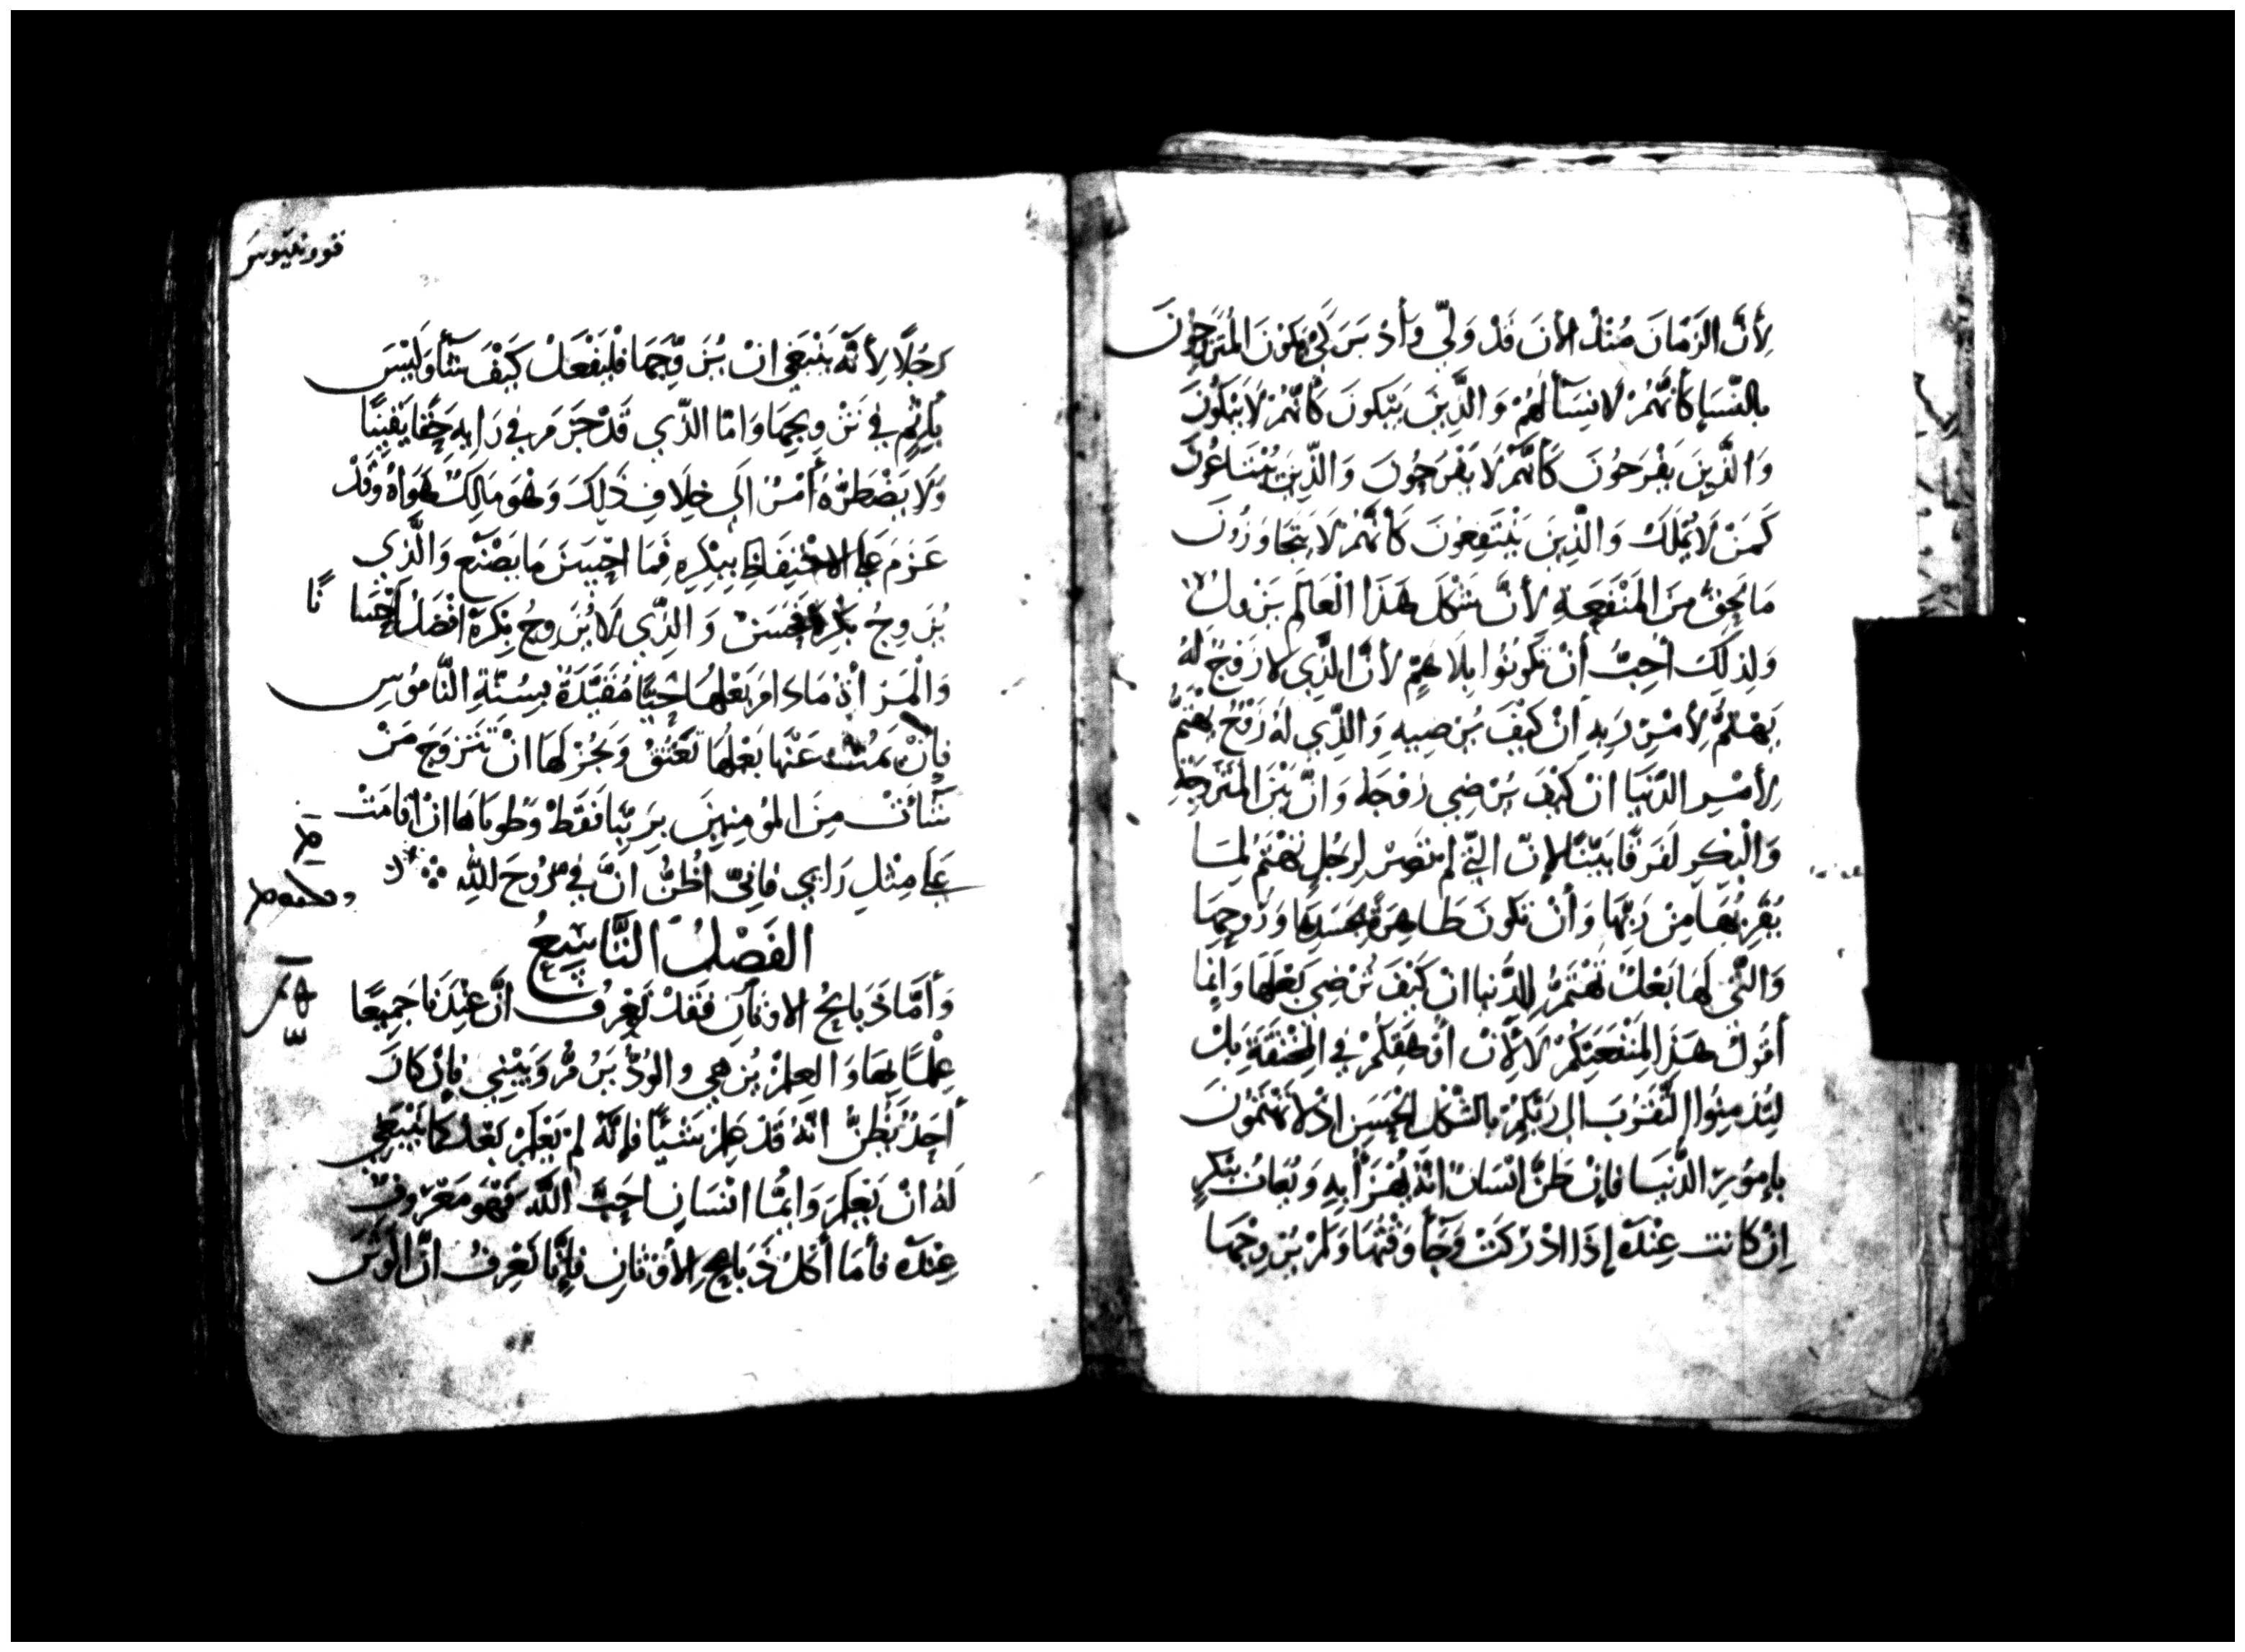 لِأَنَّ الزَمَانَ مُنْذُ الأنَ قَدْ وَلَّي وَأَدْبَرَ لِكَيْ يَكُونَ المُتَزَوِجُونَ
بالنّسَاءِ كأَنَّهُمْ لا نِسَآأَ لَهُمْ وَ الَّذِينَ يَبْكونَ كَأنَّهُمْ لَا يَبْكُونَ
وَ الَّذِينَ يَفْرَحُونَ كَأنَّهُمْ لَا يَفْرَحُونَ وَالَّذِينَ يُبْتَاعُونَ
كَمَنْ لَا يَمْلَكُ وَ الَّذِينَ يَنْتَفِعُونَ كَأنَّهُمْ لَا يَتَجَاوَزُونَ
مَا يَحِقُّ مِنَ المَنْفَعَةِ لأنَّ شَكْلَ هَذَا العَالَمِ يَزولُ
وَلِذلِكَ أُحِبُّ أَنْ تَكُونُوا بِلَا هَمٍّ لأنَّ الَّذِي لا زَوْجَ لَهُ
يَهْتَمُّ لِأَمْرِ رَبِهِ انْ كَيْفَ يُرْضِيهِ وَ الَّذِي لَهُ زَوْجٌ يَهْتَمُّ
لِأَمْرِ الدّنْيَا انْ كَيْفَ يُرْضِي زَوْجَهُ وَ انَّ بَيْنَ المُتَزَوِجَةِ
وَ الْبِكْرِ لَفَرقًا بَيّنًا لإنّ الَّتِي لَم تَصِرْ لِرَجُلٍ تَهْتَمُ لِمَا
يُقَرِبُهَا مِنْ رَبِّهَا وَ أَنْ تَكونَ طَاهِرَةً بِجَسَدِهَا وَ رُوحِهَا
وَ الَّتِي لَهَا بَعْلٌ تَهْتَمُّ لِلدّنيا انْ كَيْفَ تُرْضِي بَعْلَهَا وَ انِمَا
أقُولُ هَذَا لِمَنْفَعَتِكُمْ لَا لِأَنْ أُوهِقَكُمْ فِي المِخْنَقَةِ بَلْ
لِتُدمِنُوا التَّقَرُبَ الَي رَبِّكِمْ بِالشَّكْلِ الحَسَنِ اذْ لَا تَهْتَمُّونَ
بإِمُورِ الدُّنْيَا فَإِنْ ظَنَّ انْسَانٌ انَّهُ يُهْزَأُ بِهِ وَ يُعَابُ بِبِكْرٍ
اِنْ كانَت عِنْدَهُ إذَا ادْرَكَتْ وَجَآأَ وَقْتُهَا وَلَمْ يُزَوِجْهَا
قورنثيوس
رَجُلًا لِأَنَّهُ يَنْبَغِي انْ يُزَوِّجَهَا فَلْيَفْعَلْ كَيْفَ شَآأَ وَلَيْسَ
بِإِثْمٍ فِي تَزْوِيجِهَا وَ امَّا الَّذِي قَدْ جَزَمَ فِي رَايِهِ حَقًّا يَقِينًا
وَلَا يَضْطَرُّهُ أَمْرٌ الَي خِلَافِ ذَلِكَ وَ هُوَ مَالِكٌ هَوَاهُ وَقَدْ
عَزَمَ عَلَي الاحْتِفَاظِ بِبِكْرِهِ فَمَا احْسَنَ مَا يَصْنَع وَالَّذِي
يُزَوِجُ بِكْرَهُ فَحَسَنٌ وَ الَّذِي لَا يُزَوِجُ بِكْرَهُ افْضَلُ احْسَانًا
وَ الْمَرْأَةُ مَا دَامَ بَعْلُهَا حَيًّا مُقَيَّدَةٌ بِسُنَّةِ النَّامُوسِ
فَإِنْ يَمُتْ عَنْهَا بَعْلُهَا تَعْتَقُ وَ يَجُزْ لَهَا انْ تَتَزَوَجَ مَنْ
شَآئَتْ مِنَ المُؤمِنِينَ بِرَبِّنَا فَقَطْ وَ طُوبَاهَا انْ أقَامَتْ
عَلَي مِثْلِ رَايِي فَانِيّ اظُنُّ انَّ فِيَّ رُوحَ للهِ
الفَصْلُ التَّاسِعُ
وَ أَمَّا ذَبَايحُ الاوثَانِ فَقَدْ نَعْرِفُ انَّ عِنْدَنَا جَمِيعًا
عِلْمًا بِهَا وَ العِلمُ يُزهِي و الوُدُّ يَرُمُّ وَ يَبْنِي فَإِنْ كَانَ
أحَدٌ يَظُنّ انَّهُ قَدْ عَلِمَ شَيْئًا فَإِنَّهُ لَمْ يَعْلَمْ بَعْدُ كَمَا يَنْبَغِي
لَهُ انْ يَعْلَمَ وَ ايُّمَا انْسَانٍ احَبَّ اللّه فَهُوَ مَعْرُوفٌ
عِنْدَهُ فأَمَا أَكْلُ ذَبَايحِ الأوثَانِ فَإِنَّا نَعْرِفُ انَّ الوَثَنَ